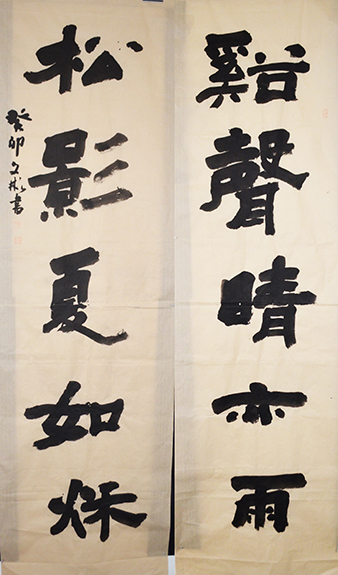 谿聲晴亦雨
松影夏如秌
癸卯文彬書